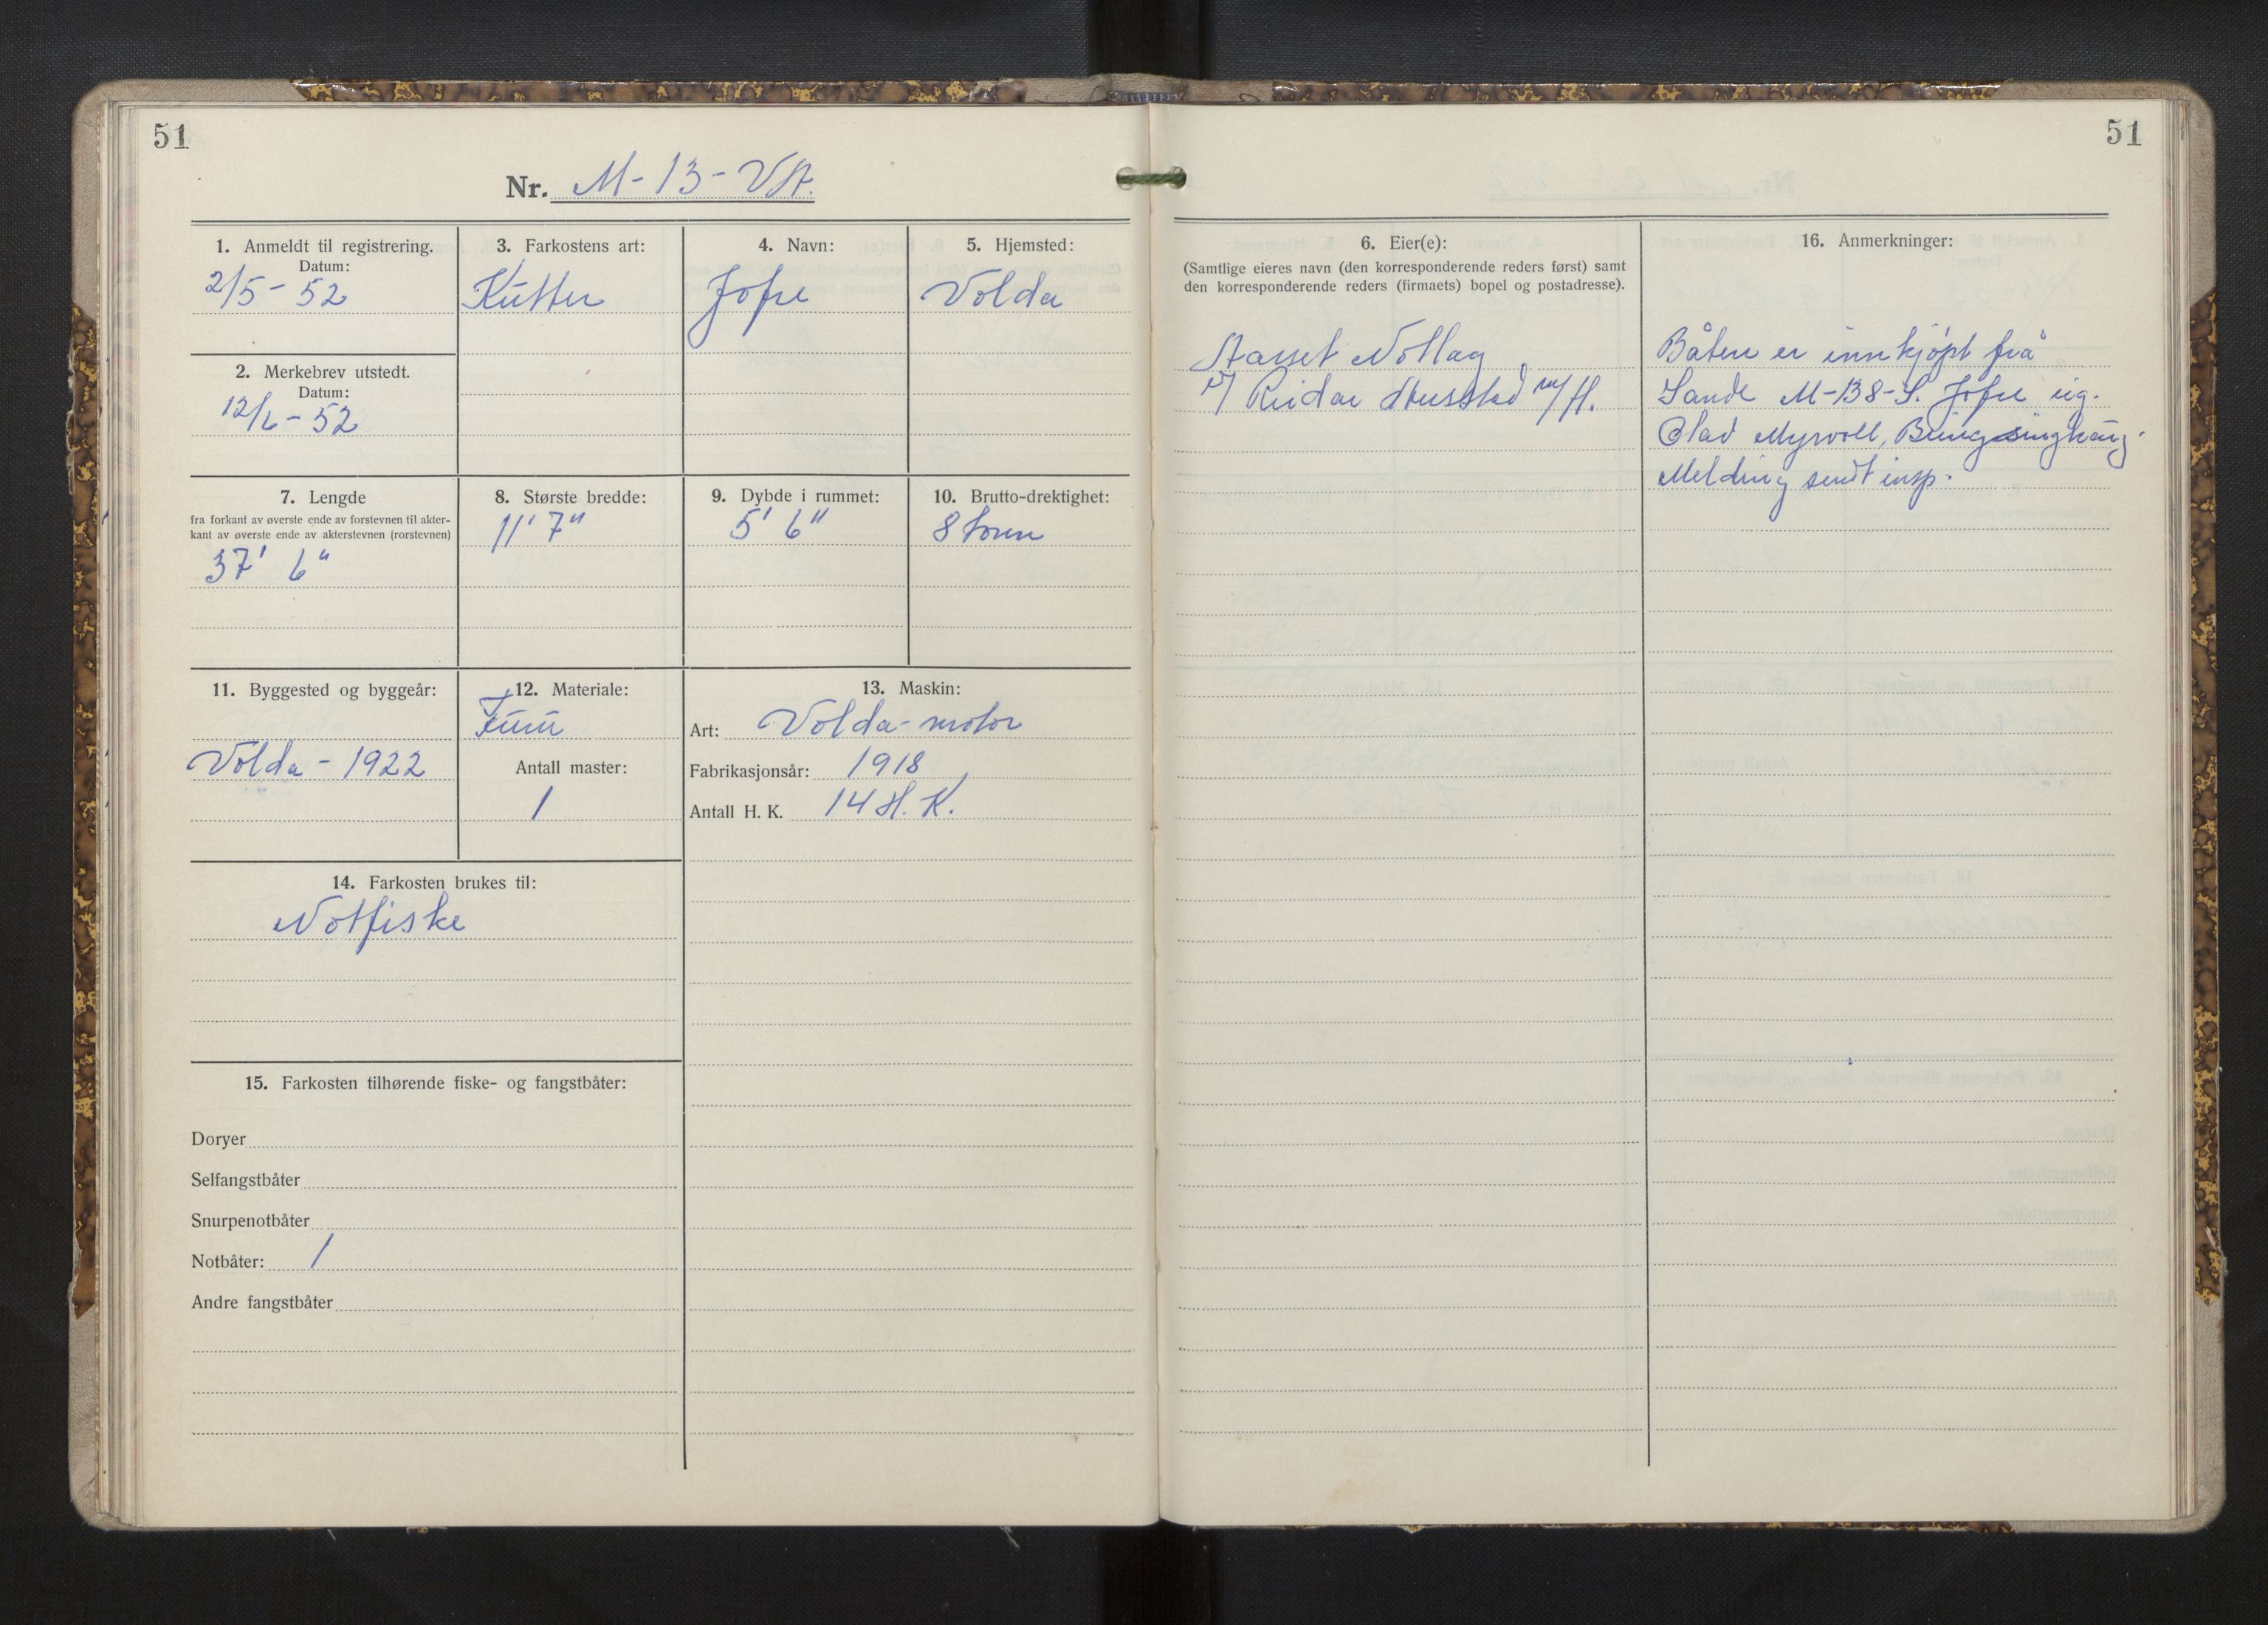 51
Nr. M-13-VA.
1. Anmeldt til registrering.
Datum:
2/5-52
2. Merkebrev utstedt.
Datum:
12/6-52
3. Farkostens art:
Kutter
4. Navn:
Jofre
5. Hjemsted:
Volda
7. Lengde
fra forkant av øverste ende av forstevnen til akter-
kant av øverste ende av akterstevnen (rorstevnen)
37' 6"
8. Største bredde:
11' 7"
9. Dybde i rummet:
5' 6"
10. Brutto-drektighet:
8 tonn
11. Byggested og byggeår:
Volda - 1922
12. Materiale:
Furu
Antall master:
1
13. Maskin:
Art: Volda-motor
Fabrikasjonsår: 1918
Antall H. K. 14 H.K.
14. Farkosten brukes til:
Notfiske
15. Farkosten tilhørende fiske- og fangstbåter:
Doryer
Selfangstbåter
Snurpenotbåter
Notbåter: 1
Andre fangstbåter
51
6. Eier(e):
(Samtlige eieres navn (den korresponderende reders først) samt
den korresponderende reders (firmaets) bopel og postadresse).
Aasset Notlag
v/ Reidar m/fl.
16. Anmerkninger:
Båten er innkjøpt frå
Sande M-138-S. Jofre eig.
Olad Myrvoll,
Melding sendt insp.